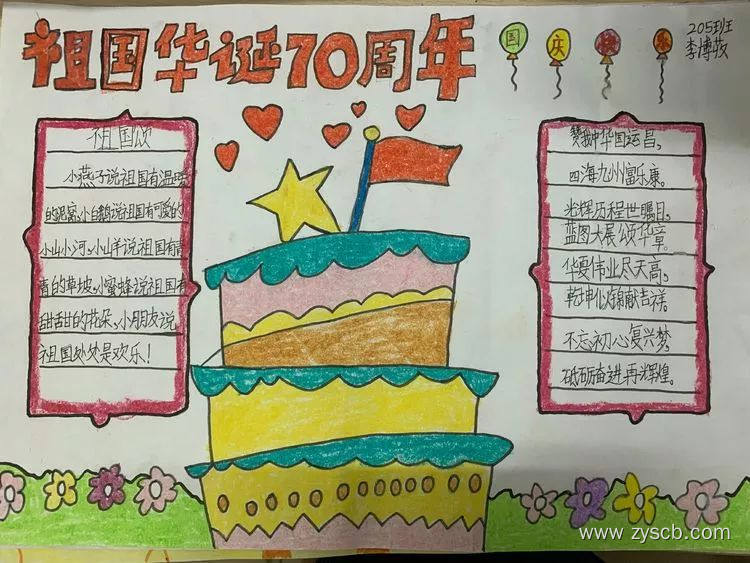 祖国华诞70周年
国 庆 快 乐
205班
李博筱
祖国颂
小燕子说祖国有温暖
的泥窝,小白鹅说祖国有可爱的
小山小河,小山羊说祖国有青
青的草坡,小蜜蜂说祖国有
甜甜的花朵,小朋友说
祖国处处是欢乐!
赞我中华国运昌,
四海九州富乐康。
光辉历程世瞩目,
蓝图大展颂华章。
华夏伟业尽天高,
乾坤化育献吉祥。
不忘初心复兴梦,
砥砺奋进再辉煌。
www.zyscb.com